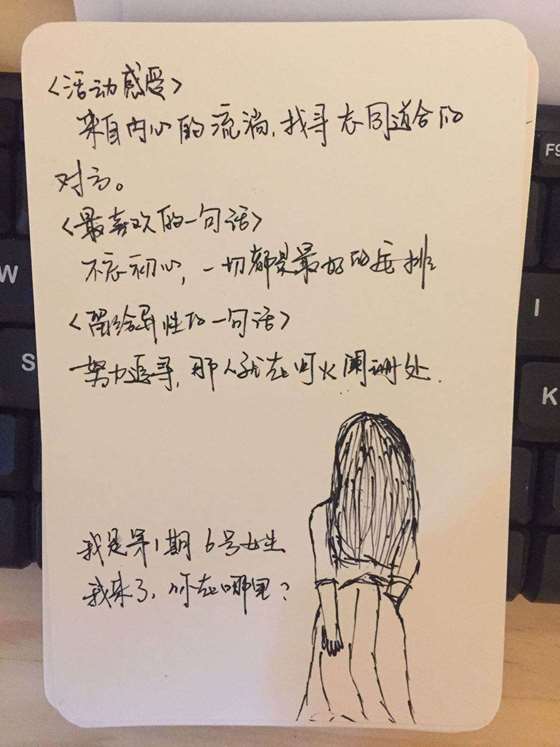 <活动感受>
来自内心的流淌,找寻志同道合的
对方。
<最喜欢的一句话>
不忘初心,一切都是最好的安排
<留给异性的一句话>
努力追寻,那人就在灯火阑珊处.
我是第1期6号女生
我来了,你在哪里?
F9
W
S
I
K